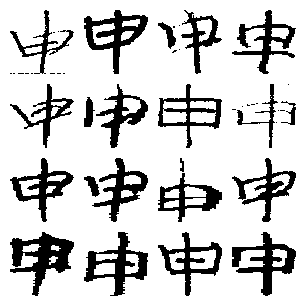 申申申申
申申申申
申申申申
申申申申